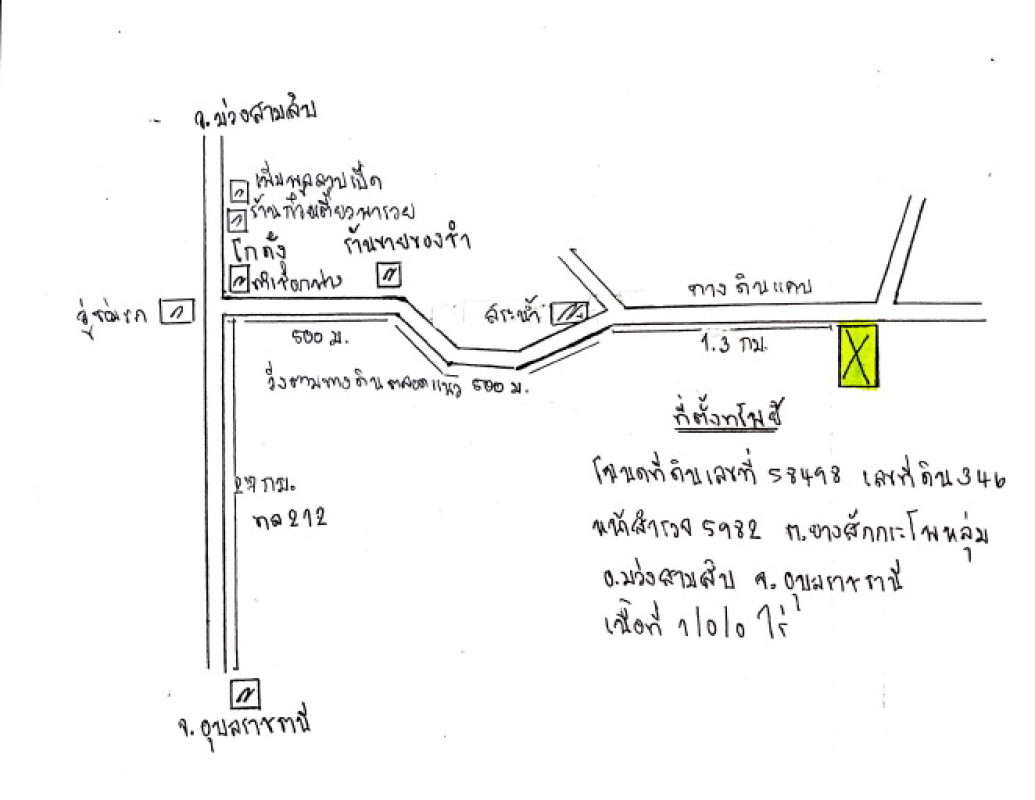 จ.ม่วงสามสิบ
เพิ่มพูลลาบเป็ด
ร้านก๋วยเตี๋ยวพารวย
โกดัง
ร้านขายของชำ
อู่ซ่อมรถ
สระน้ำ
ทางดินแคบ
500 ม.
1.3 กม.
วิ่งตามทางดินตลอดแนว 500 ม.
ที่ตั้งทรัพย์
27 กม.
ทล 212
โฉนดที่ดินเลขที่ 58498 เลขที่ดิน 346
หน้าสำรวจ 5982 ต.ยางสักกระโพหลุ่ม
อ.ม่วงสามสิบ จ.อุบลราชธานี
เนื้อที่ 1/0/0 ไร่
จ.อุบลราชธานี